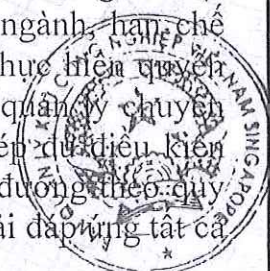 ngành, hạn chế
hực hiện quyền
quản lý chuyên
ép đủ điều kiện
đương theo quy
ải đáp ứng tất cả
CÔNG NGHIỆP VIỆT NAM SINGAPORE